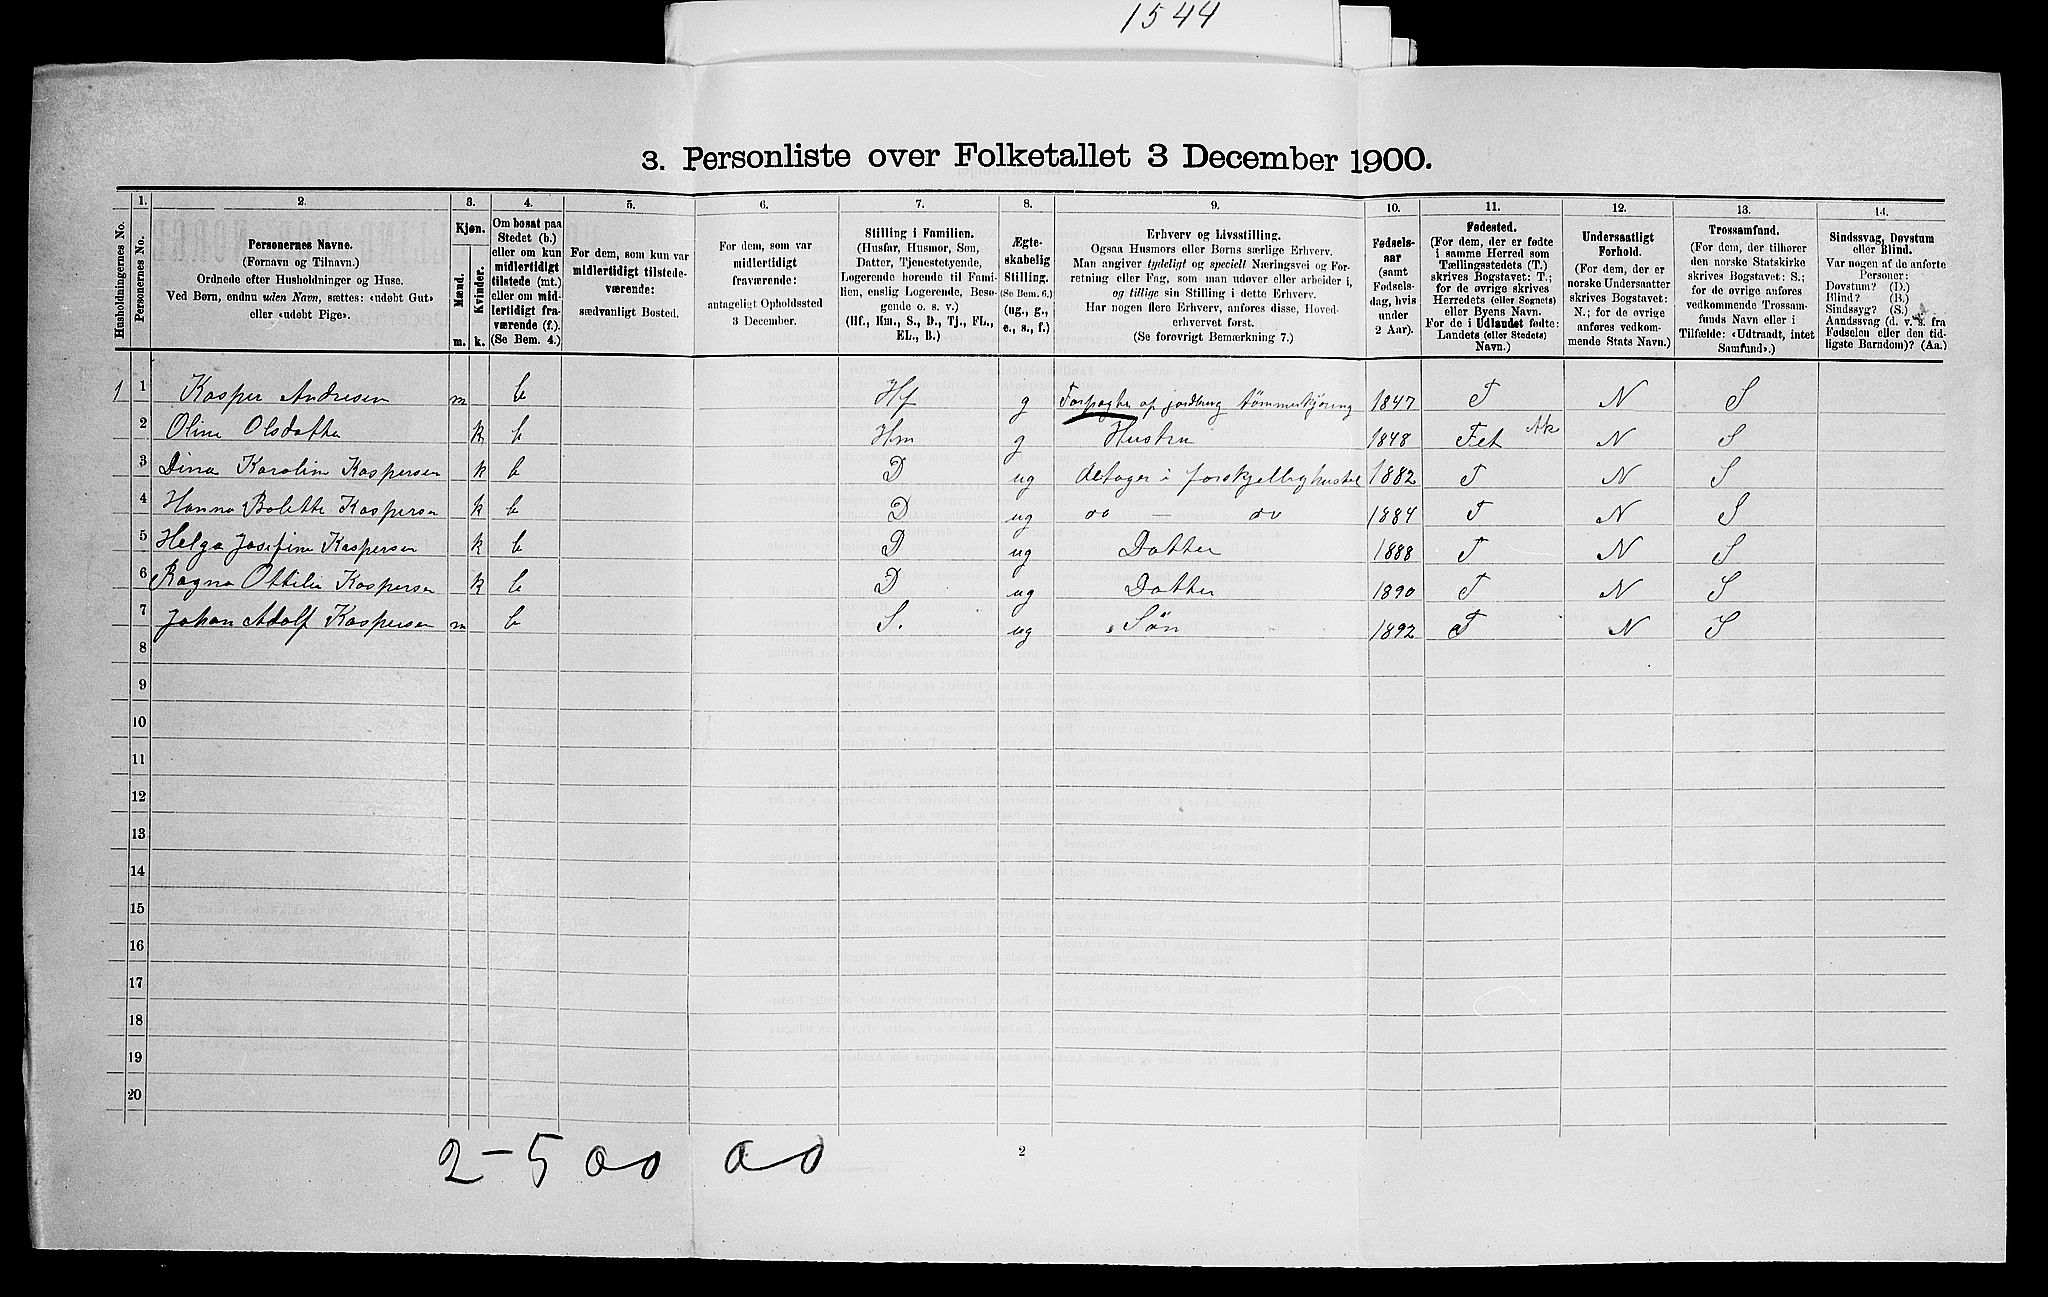 1544
3. Personliste over Folketallet 3 December 1900.
Husholdningernes No.
1.
Personernes No.
2.
Personernes Navne.
(Fornavn og Tilnavn.)
Ordnede efter Husholdninger og Huse.
Ved Børn, endnu uden Navn, sættes: «udøbt Gut»
eller «udøbt Pige».
3.
Kjøn.
Mænd.
Kvinder.
m. k.
4.
Om bosat paa
Stedet (b.)
eller om kun
midlertidigt
tilstede (mt.)
eller om mid-
lertidigt fra-
værende (f.).
(Se Bem. 4.)
5.
For dem, som kun var
midlertidigt tilstede-
værende:
sædvanligt Bosted.
6.
For dem, som var
midlertidigt
fraværende:
antageligt Opholdssted
3 December.
7.
Stilling i Familien.
(Husfar, Husmor, Søn,
Datter, Tjenestetyende,
Logerende hørende til Fami-
lien, enslig Logerende, Besø-
gende o. s. v.)
(Hf., Hm., S., D., Tj., FL.,
EL., B.)
8.
Ægte-
skabelig
Stilling.
(Se Bem. 6.)
(ug., g.,
e., s., f.)
9.
Erhverv og Livsstilling.
Ogsaa Husmors eller Børns særlige Erhverv.
Man angiver tydeligt og specielt Næringsvei og For-
retning eller Fag, som man udøver eller arbeider i,
og tillige sin Stilling i dette Erhverv.
Har nogen flere Erhverv, anføres disse, Hoved-
erhvervet først.
(Se forøvrigt Bemærkning 7.)
10.
Fødsels-
aar
(samt
Fødsels-
dag, hvis
under
2 Aar).
11.
Fødested.
(For dem, der er fødte
i samme Herred som
Tællingsstedets (T.)
skrives Bogstavet: T.;
for de øvrige skrives
Herredets (eller Sognets)
eller Byens Navn.
For de i Udlandet fødte:
Landets (eller Stedets)
Navn.)
12.
Undersaatligt
Forhold.
(For dem, der er
norske Undersaatter
skrives Bogstavet:
N.; for de øvrige
anføres vedkom-
mende Stats Navn.)
13.
Trossamfund.
(For dem, der tilhører
den norske Statskirke
skrives Bogstavet: S.;
for de øvrige anføres
vedkommende Trossam-
funds Navn eller i
Tilfælde: «Udtraadt, intet
Samfund».)
14.
Sindssvag, Døvstum
eller Blind.
Var nogen af de anførte
Personer:
Døvstum? (D.)
Blind? (B.)
Sindssyg? (S.)
Aandssvag (d. v. s. fra
Fødselen eller den tid-
ligste Barndom)? (Aa.)
1 1 Kasper Andresen m b Hf g Forpagter af jordbrug tømmerkjøring 1847 T N S
2 Oline Olsdatter k b Hm g Hustru 1848 Fet Ak N S
3 Dina Karoline Kaspersen k b D ug detager i forskjellig husstel 1882 T N S
4 Hanna Bolette Kaspersen k b D ug do — do 1884 T N S
5 Helga Josefine Kaspersen k b D ug Datter 1888 T N S
6 Ragna Ottilie Kaspersen k b D ug Datter 1890 T N S
7 Johan Adolf Kaspersen m b S. ug Søn 1892 T N S
8
9
10
11
12
13
14
15
16
17
18
19
20
2-5 00 00
2